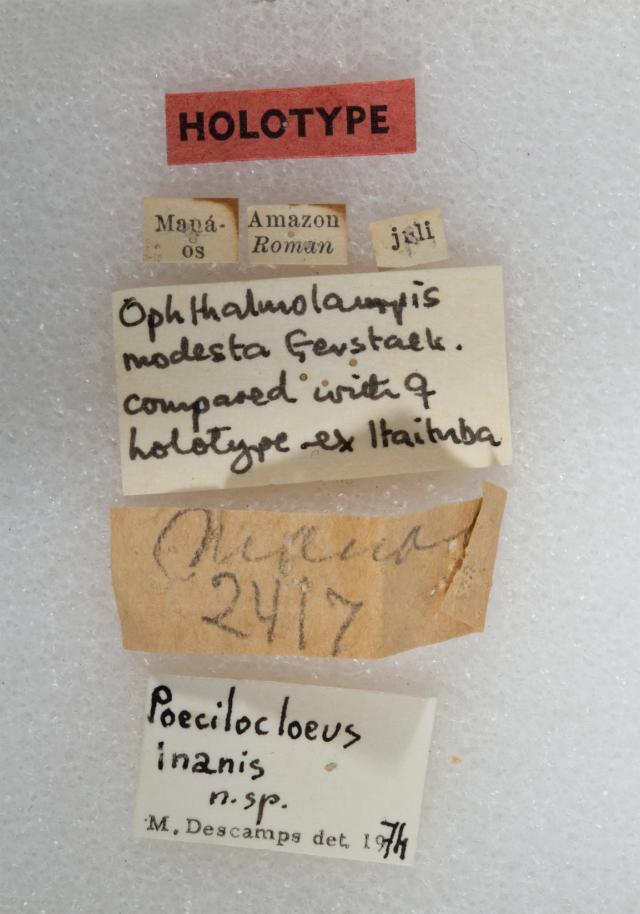 HOLOTYPE
Maná-
os
Amazon
Roman
juli
Ophthalmolampis
modesta Gerstaek.
compared with ♀
holotype ex Itaituba
Manaos
2417
Poecilocloeus
inanis
n.sp.
M. Descamps det. 1974